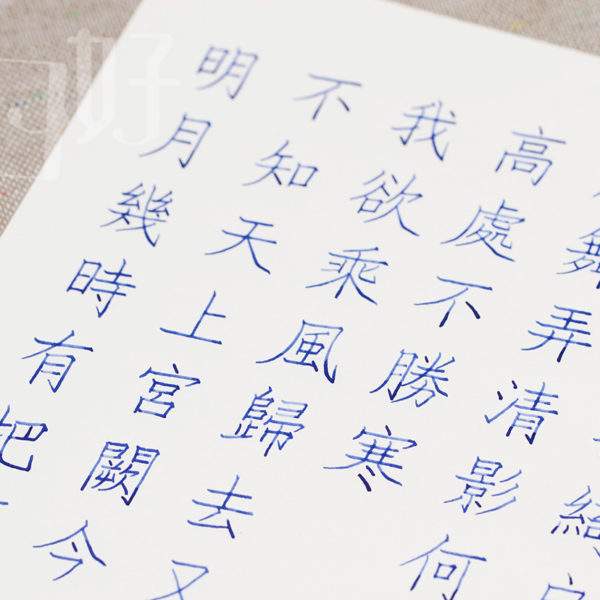 明月幾時有把
不知天上宮闕今
我欲乘風歸去又
高處不勝寒
舞弄清影何
綺
好